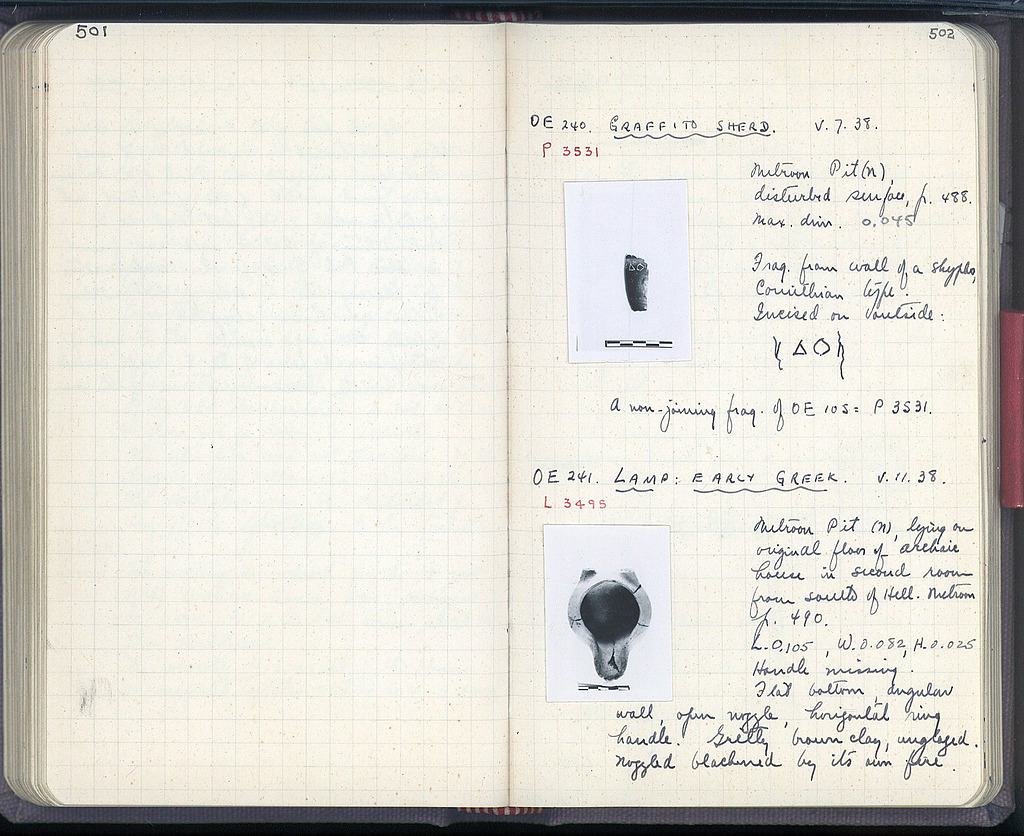 501
502
OE 240. GRAFFITO SHERD. V. 7. 38.
P 3531
Metroon Pit (N),
disturbed surface, p. 488.
Max. dim. 0.045
Frag. from wall of a skyphos,
Corinthian type.
Incised on outside:
ΔΟ
A non-joining frag. of OE 105 = P 3531.
OE 241. LAMP: EARLY GREEK. V. 11. 38.
L 3495
Metroon Pit (N), lying on
original floor of archaic
house in second room
from south of Hell. Metroon
p. 490.
L. 0.105, W. 0.082, H. 0.025
Handle missing.
Flat bottom, angular
wall, open nozzle, horizontal ring
handle. Gritty brown clay, unglazed.
Nozzled blackened by its own fire.